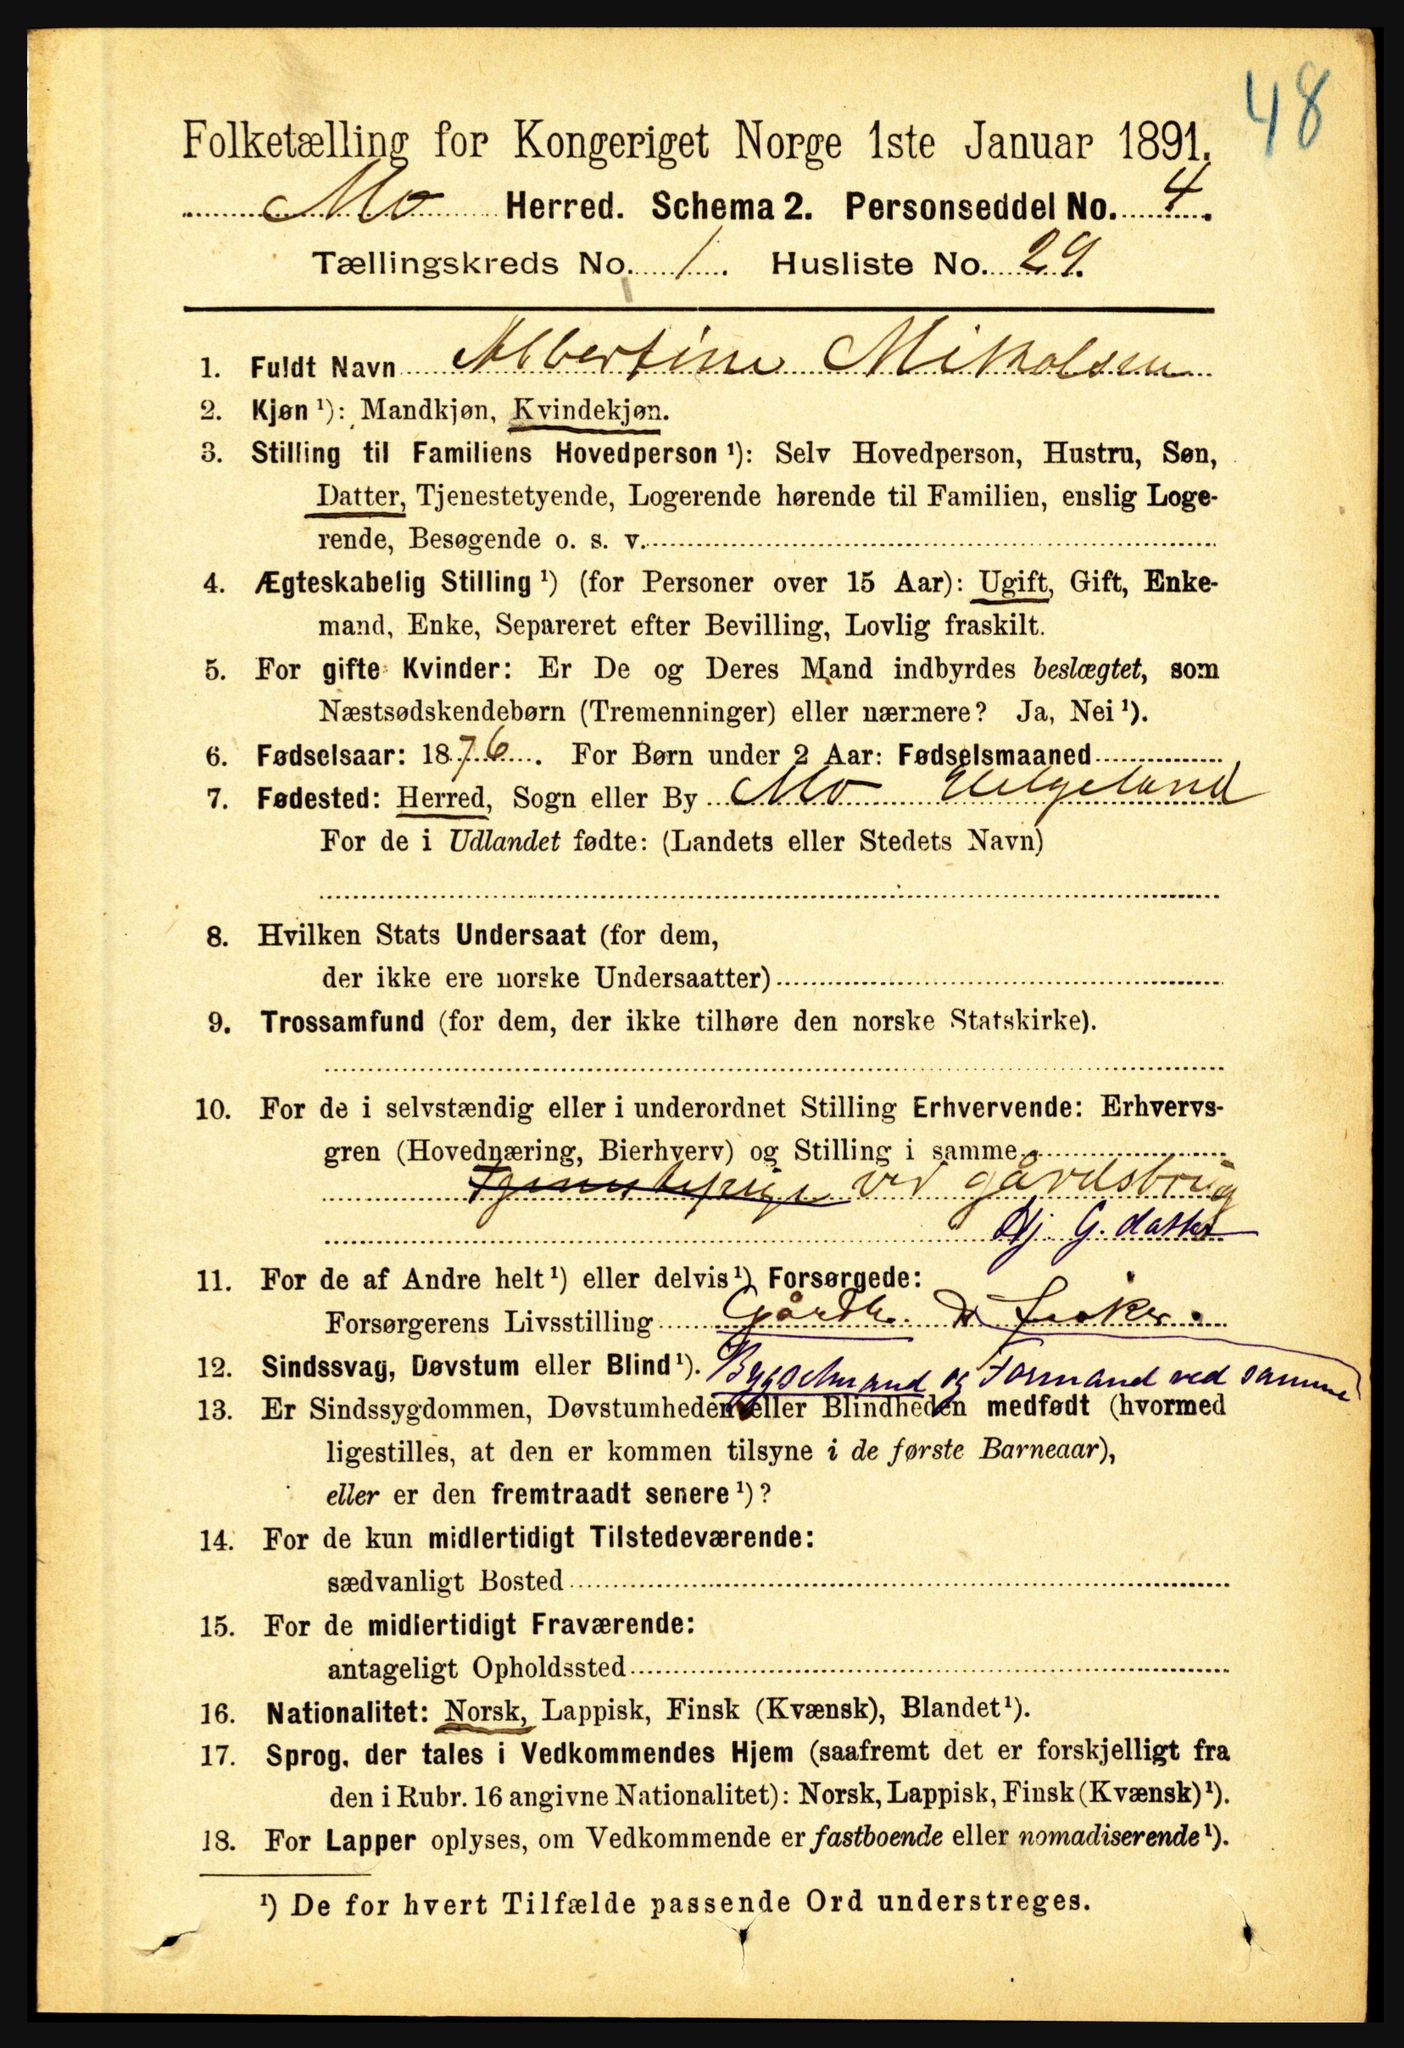 48
Folketælling for Kongeriget Norge 1ste Januar 1891.
Mo Herred. Schema 2. Personseddel No. 4.
Tællingskreds No. 1. Husliste No. 29.
1. Fuldt Navn Albertine Mikalsen
2. Kjøn ¹): Mandkjøn, Kvindekjøn.
3. Stilling til Familiens Hovedperson ¹): Selv Hovedperson, Hustru, Søn,
Datter, Tjenestetyende, Logerende hørende til Familien, enslig Loge-
rende, Besøgende o. s. v.
4. Ægteskabelig Stilling ¹) (for Personer over 15 Aar): Ugift, Gift, Enke-
mand, Enke, Separeret efter Bevilling, Lovlig fraskilt.
5. For gifte Kvinder: Er De og Deres Mand indbyrdes beslægtet, som
Næstsødskendebørn (Tremenninger) eller nærmere? Ja, Nei ¹).
6. Fødselsaar: 1876. For Børn under 2 Aar: Fødselsmaaned
7. Fødested: Herred, Sogn eller By Mo Helgeland
For de i Udlandet fødte: (Landets eller Stedets Navn)
8. Hvilken Stats Undersaat (for dem,
der ikke ere norske Undersaatter)
9. Trossamfund (for dem, der ikke tilhøre den norske Statskirke).
10. For de i selvstændig eller i underordnet Stilling Erhvervende: Erhvervs-
gren (Hovednæring, Bierhverv) og Stilling i samme
ved gårdsbrug
G. datter
11. For de af Andre helt ¹) eller delvis ¹) Forsørgede:
Forsørgerens Livsstilling Gårdb. fisker.
12. Sindssvag, Døvstum eller Blind ¹). og Formand ved samme
13. Er Sindssygdommen, Døvstumheden eller Blindheden medfødt (hvormed
ligestilles, at den er kommen tilsyne i de første Barneaar),
eller er den fremtraadt senere ¹)?
14. For de kun midlertidigt Tilstedeværende:
sædvanligt Bosted
15. For de midlertidigt Fraværende:
antageligt Opholdssted
16. Nationalitet: Norsk, Lappisk, Finsk (Kvænsk), Blandet ¹).
17. Sprog, der tales i Vedkommendes Hjem (saafremt det er forskjelligt fra
den i Rubr. 16 angivne Nationalitet): Norsk, Lappisk, Finsk (Kvænsk) ¹).
18. For Lapper oplyses, om Vedkommende er fastboende eller nomadiserende ¹).
¹) De for hvert Tilfælde passende Ord understreges.